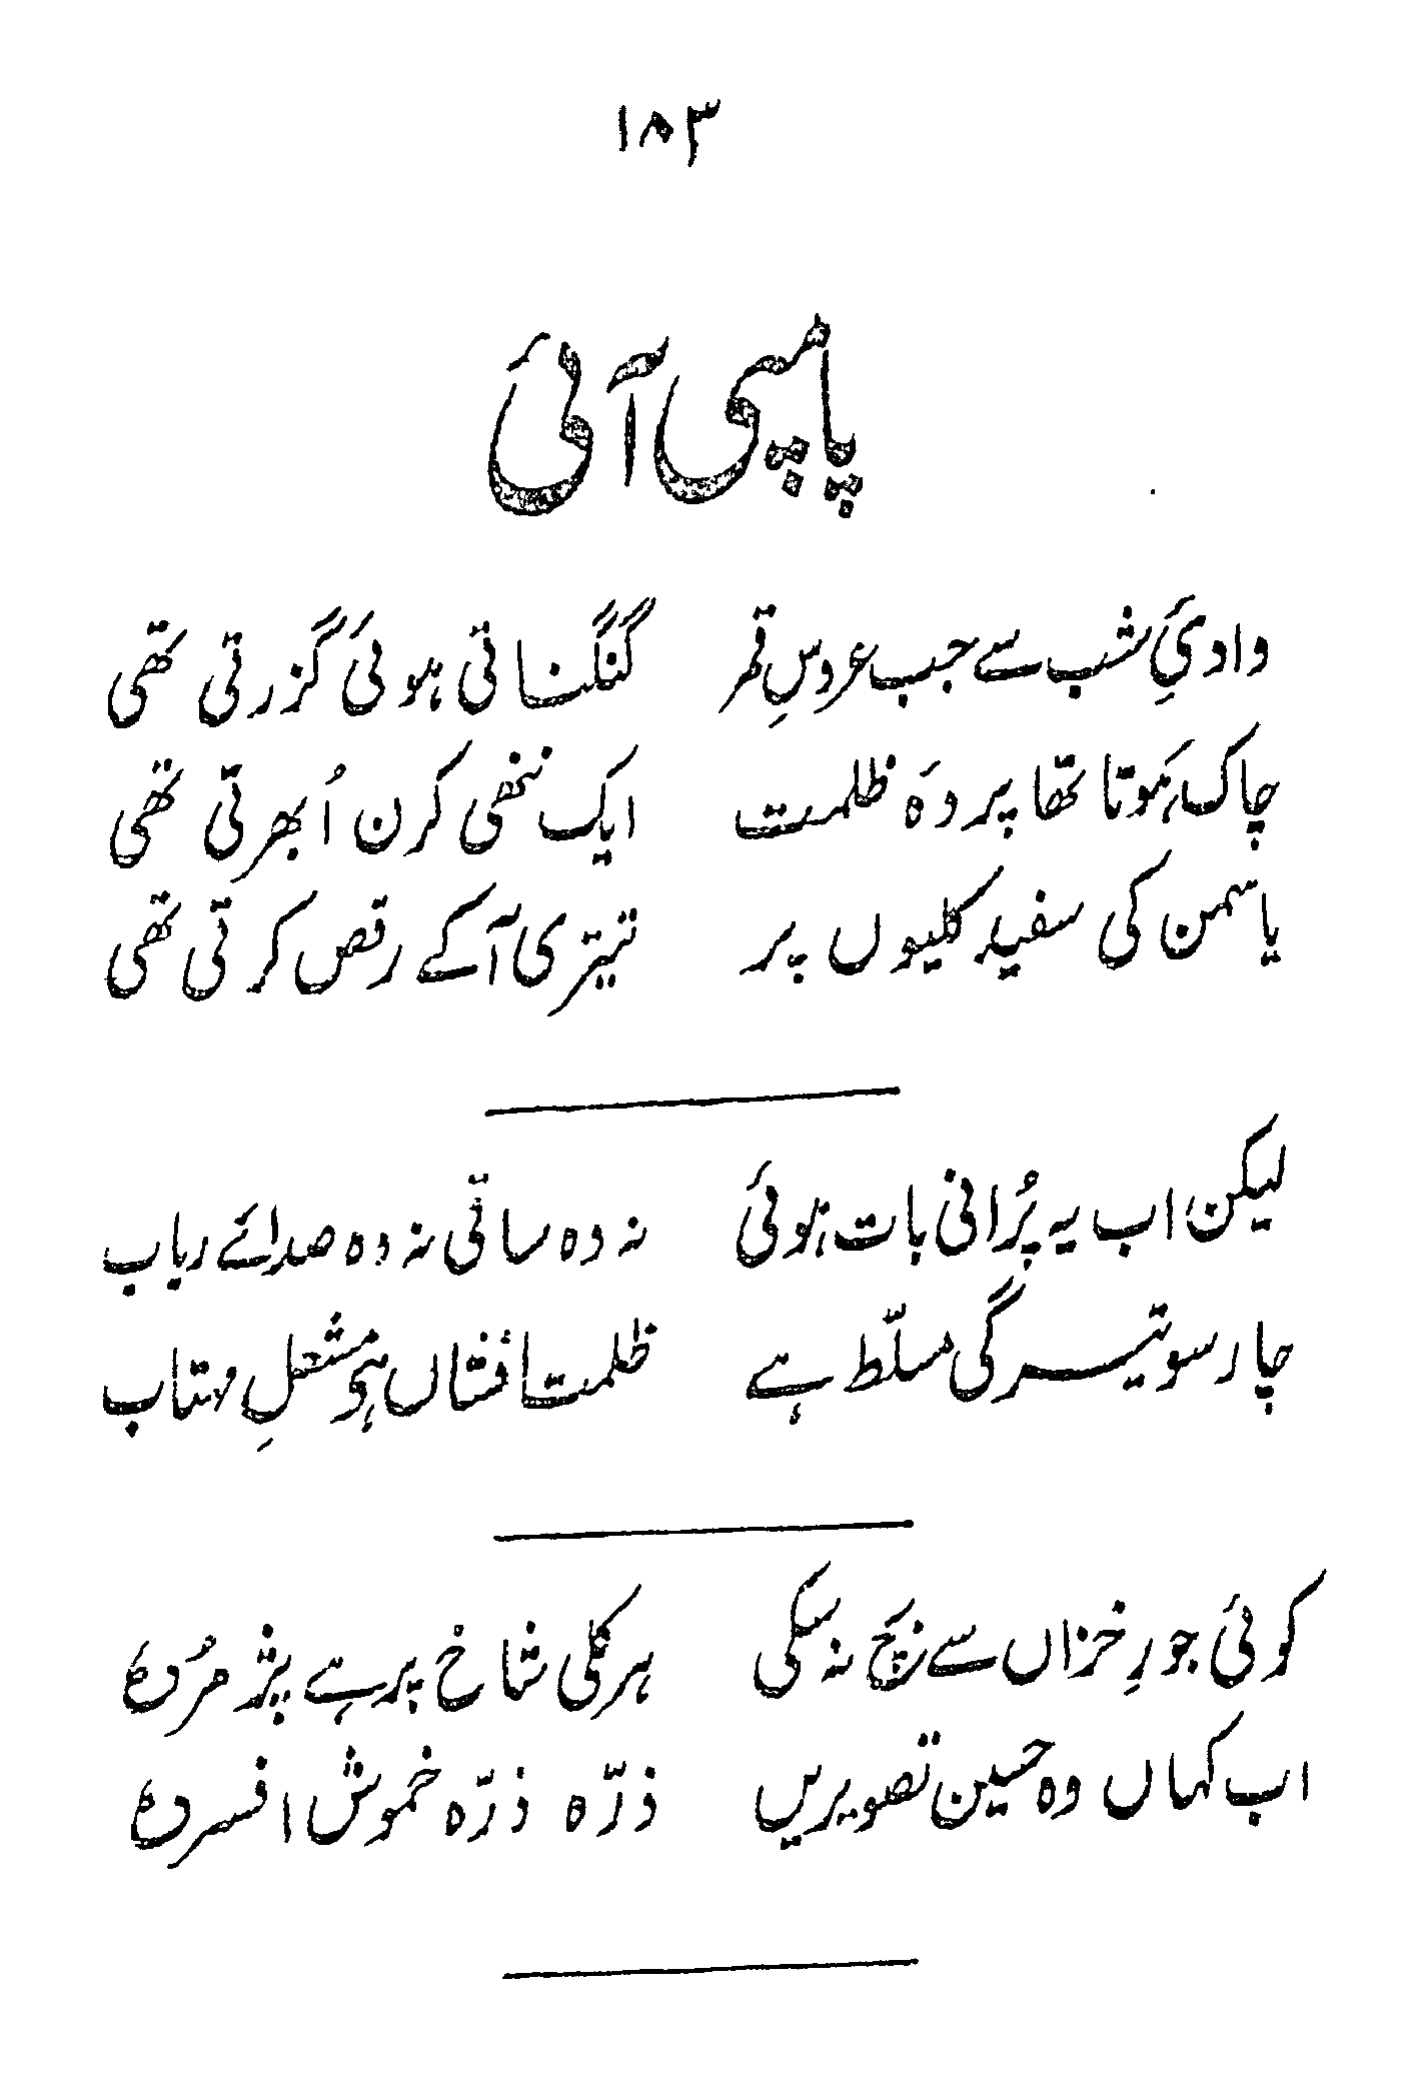 ۱۸۳
پامپی آئی
وادیِٔ شب سے جب عروسِ قمر گنگناتی ہوئی گزرتی تھی
چاک ہوتا تھا پردۂ ظلمت ایک ننھی کرن اُبھرتی تھی
یاسمن کی سفید کلیوں پر تیتری آ کے رقص کرتی تھی
لیکن اب یہ پُرانی بات ہوئی نہ وہ ساقی نہ وہ صدائے رباب
چار سو تیرگی مسلّط ہے ظلمت افشاں ہے مشعلِ مہتاب
کوئی جورِ خزاں سے بچ نہ سکی ہر کلی شاخ پر ہے پژمُردہ
اب کہاں وہ حسین تصویریں ذرّہ ذرّہ خموش افسردہ